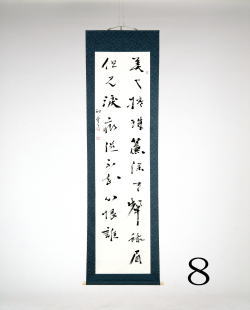 美人捲珠簾深坐顰蛾眉
但見淚痕濕不知心恨誰
8